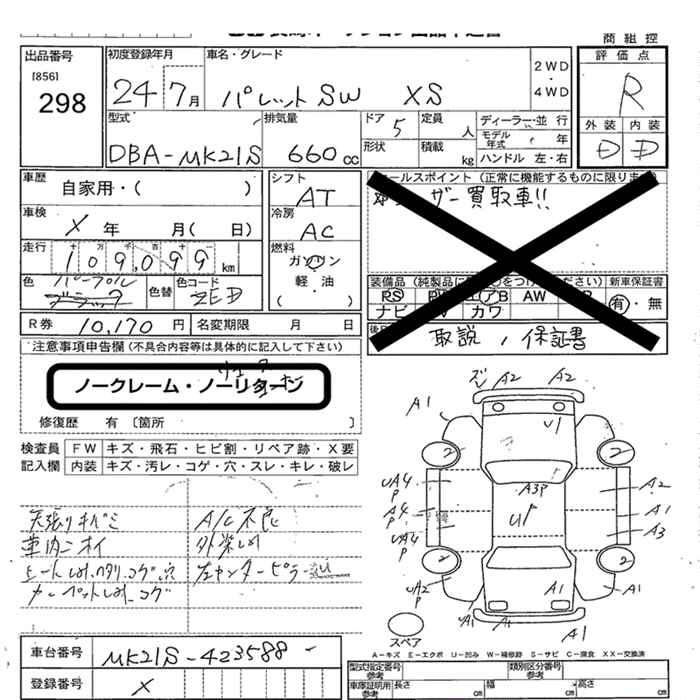 商組控
出品番号
[856]
298
初度登録年月
24年 7月
車名・グレード
パレット SW XS
2WD
・
4WD
評価点
R
外装 内装
D D
型式
DBA-MK21S
排気量
660 cc
ドア 5
形状
定員 人
積載 kg
ディーラー・並行
モデル年式 年
ハンドル 左・右
車歴
自家用・( )
車検
X 年 月( 日)
走行
十万 千百十一
109,099 km
色
パープル
ブラック
色替
色コード
ZED
シフト
AT
冷房
AC
燃料
ガソリン
軽・油
( )
セールスポイント (正常に機能するものに限ります)
ユーザー買取車!!
装備品 (純製品に
をつけ
ください) 新車保証書
PS PW エアB AW
ナビ TV カワ
有・無
取説 , 保証書
R券 10,170 円
名変期限 月 日
注意事項申告欄 (不具合内容等は具体的に記入して下さい)
ノークレーム・ノーリターン
修復歴 有 〔箇所 〕
検査員 FW キズ・飛石・ヒビ割・リペア跡・X要
記入欄 内装 キズ・汚レ・コゲ・穴・スレ・キレ・破レ
天張りキバミ
A/C不良
車内ニオイ
シートしみ.ヘタリ.コゲ.穴
左センターピラー
カーペットしみ.コゲ
A2 A2
A1
U1
2 2
UA4
P
A3P
A2
A4
P
U1
A1
UA4
P
A3
2 2
UA2
P
A1
A1
A1
U1 A1
A1
スペア
A-キズ E-エクボ U-凹み W-補修跡 S-サビ C-腐食 XX-交換済
車台番号
MK21S-423588-
登録番号
X
型式指定番号
参考
類別区分番号
参考
車庫証明用
参考
長さ cm
幅 cm
高さ cm